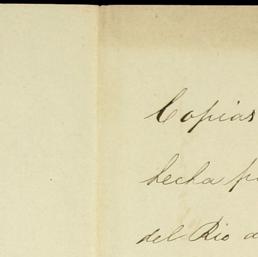 Copias
hecha p
del Rio a